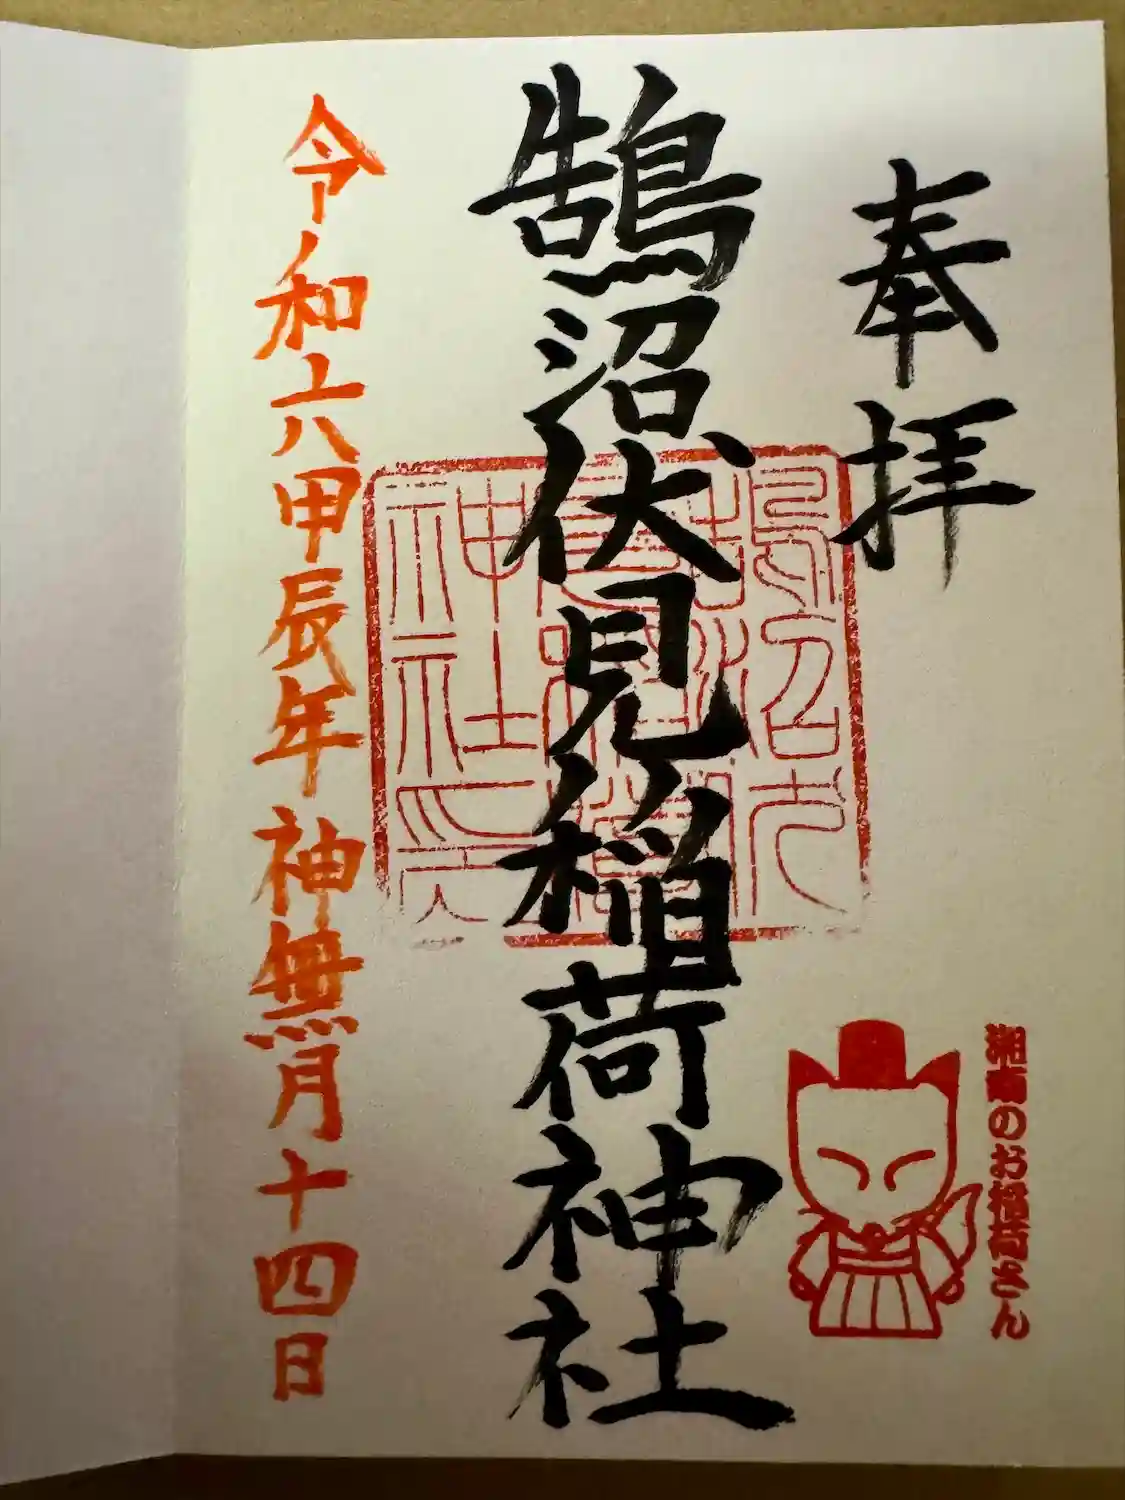 奉拝
鵠沼伏見稲荷神社
鵠沼伏
見稲荷
神社印
湘南のお稲荷さん
令和六甲辰年神無月十四日